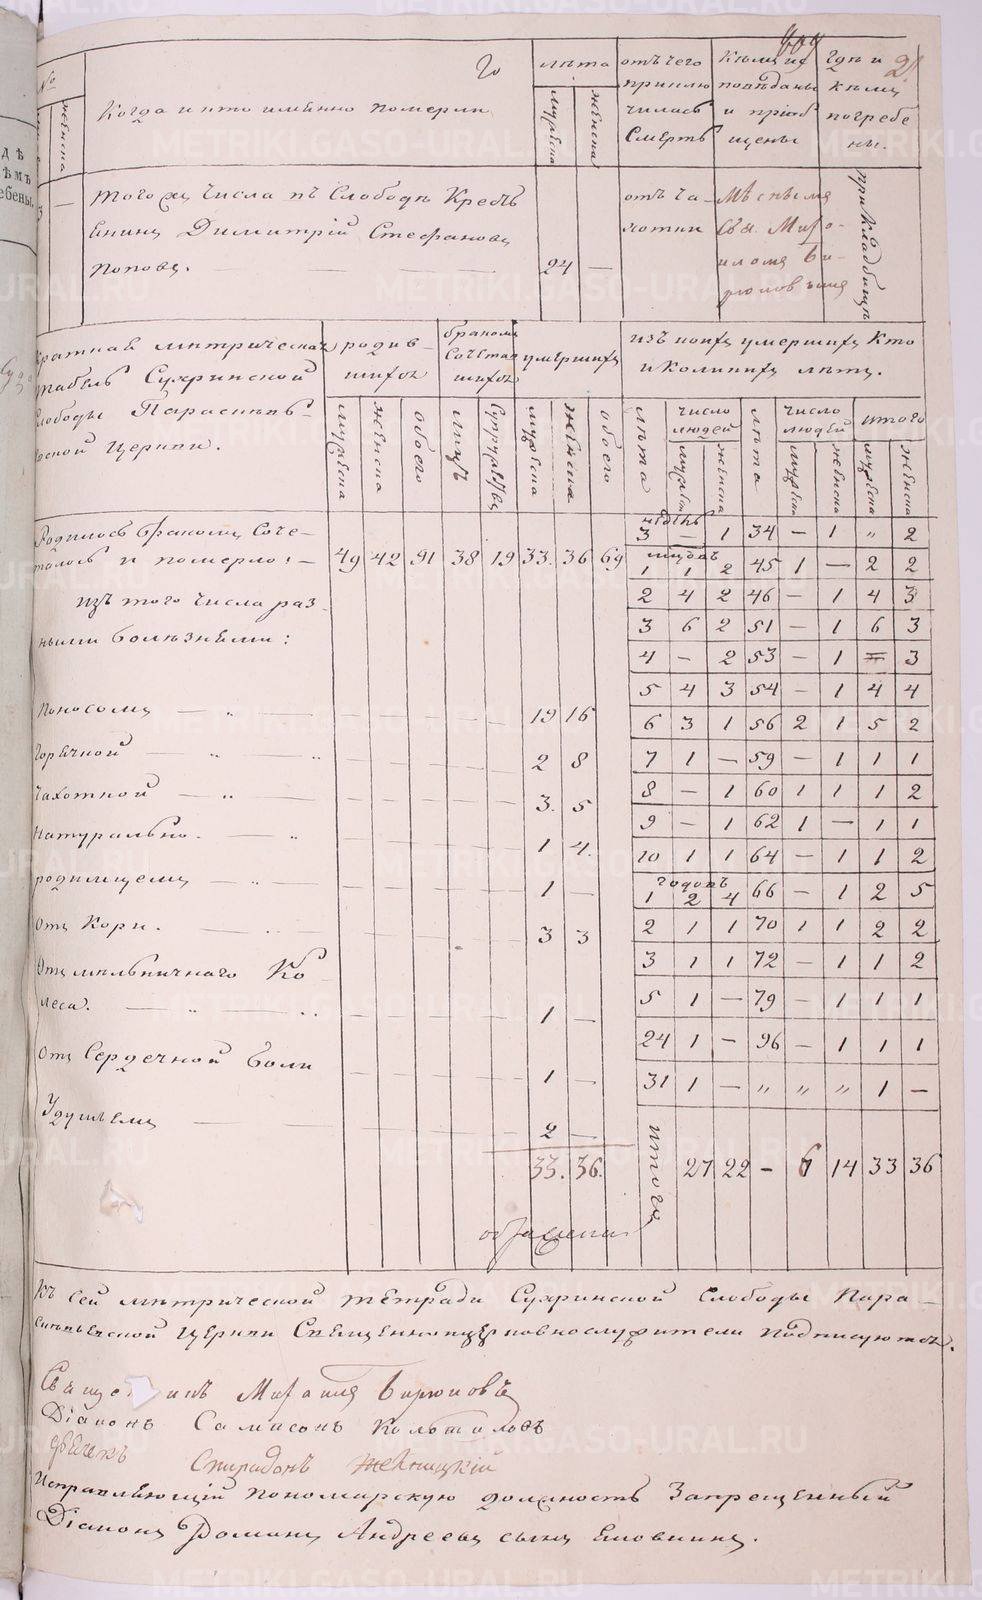 609
21
№
женска
Когда и кто именно померли
лѣта
мужеска
женска
отъ чего приключилась смерть
Кѣмъ исповѣданы и пріобщены
Гдѣ и кѣмъ погребены.
3 —
того жъ числа въ Слободѣ Кресть-
янинъ Димитрій Стефановъ
Поповъ. 24 —
отъ чахотки
Мѣстнымъ
Свящ. Миха-
иломъ Би-
рюковымъ
при кладбищѣ
Краткая метрическая
табель Сухринской
Слободы Параскев-
ской Церкви.
родив-
шихся
бракомъ
сочетав
шихся
умершихъ
изъ коихъ умершихъ кто
и коликихъ лѣтъ.
мужеска женска обоего лицъ супружествъ мужеска женска обоего
лѣта число людей лѣта число людей итого
мужеска женска мужеска женска мужеска женска
Родилось бракомъ соче-
талось и померло: 49 42 91 38 19 33. 36 69
изъ того числа раз-
ными болѣзнями:
Поносомъ — „ — 19 16
Горячкой — „ 2 8
Чахоткой — „ — 3. 5
Натурально. — „ 1 4.
родимцемъ — „ — 1 —
Отъ Кори. — 3 3
Отъ мельничнаго Ко-
леса. — „ 1 —
Отъ Сердечной боли 1 —
Удушьемъ — 2 —
33. 36.
недѣль
3 — 1 34 — 1 „ 2
мѣсяцовъ
1 1 2 45 1 — 2 2
2 4 2 46 — 1 4 3
3 6 2 51 — 1 6 3
4 — 2 53 — 1 — 3
5 4 3 54 — 1 4 4
6 3 1 56 2 1 5 2
7 1 — 59 — 1 1 1
8 — 1 60 1 1 1 2
9 — 1 62 1 — 1 1
10 1 1 64 — 1 1 2
годовъ
1 2 4 66 — 1 2 5
2 1 1 70 1 1 2 2
3 1 1 72 — 1 1 2
5 1 — 79 — 1 1 1
24 1 — 96 — 1 1 1
31 1 — „ „ „ 1 —
итого 27 22 — 6 14 33 36
Къ сей метрической тетради Сухринской Слободы Пара-
скевьевской Церкви Священноцерковнослужители подписуются.
Священникъ Михаилъ Бирюковъ
Діаконъ Сампсонъ
дьячекъ Спиридонъ
Исправляющій пономарскую должность Запрещенный
Діаконъ Романъ Андреевъ сынъ
METRIKI.GASO-URAL.RU